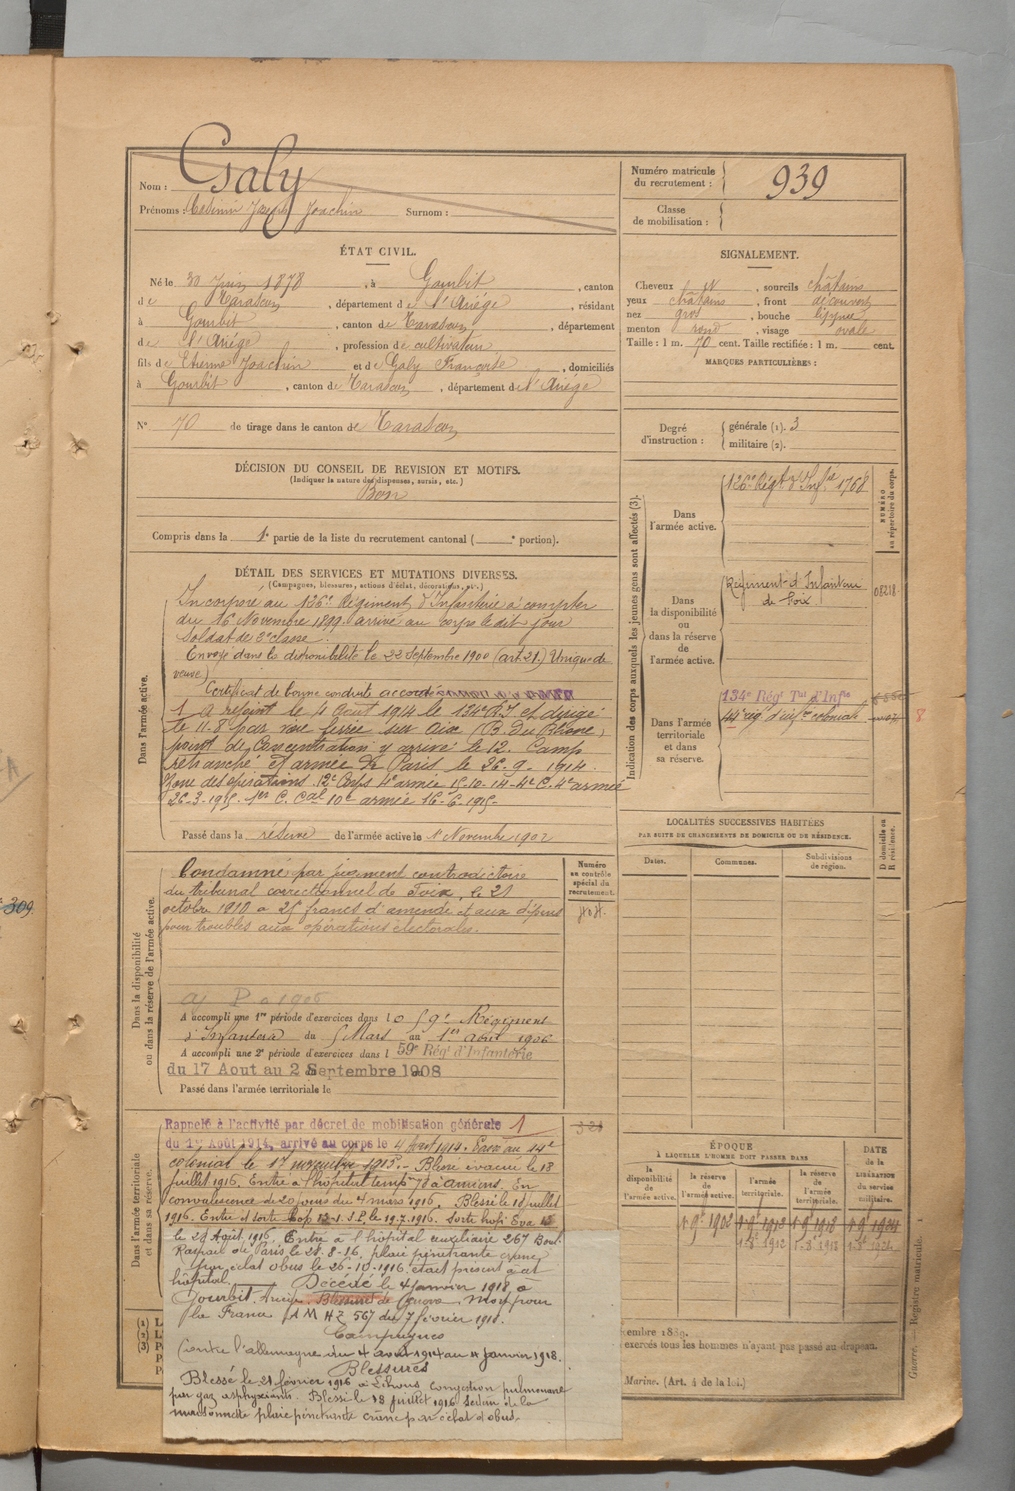 Nom : Galy
Prénoms : Casimir Joseph Joachin Surnom :
Numéro matricule du recrutement : 939
Classe de mobilisation :
ÉTAT CIVIL.
Né le 30 Juin 1878, à Gourbit, canton
de Tarascon, département de l'Ariége, résidant
à Gourbit, canton de Tarascon, département
de l'Ariége, profession de cultivateur
fils de Etienne Joachin et de Galy Françoise, domiciliés
à Gourbit, canton de Tarascon, département de l'Ariége
N° 70 de tirage dans le canton de Tarascon
SIGNALEMENT.
Cheveux et, sourcils châtains
yeux châtains, front découvert
nez gros, bouche
menton rond, visage ovale
Taille : 1 m. 70 cent. Taille rectifiée : 1 m. cent.
MARQUES PARTICULIÈRES :
Degré d'instruction : générale (1). 3
militaire (2).
DÉCISION DU CONSEIL DE REVISION ET MOTIFS.
(Indiquer la nature des dispenses, sursis, etc.)
Bon
Compris dans la 1e partie de la liste du recrutement cantonal ( e portion).
DÉTAIL DES SERVICES ET MUTATIONS DIVERSES.
(Campagnes, blessures, actions d'éclat, décorations, etc.)
Dans l'armée active.
Incorporé au 126e Régiment d'Infanterie à compter
du 16 Novembre 1899 arrivé au corps le dit jour
Soldat de 2e classe.
Envoyé dans la disponibilité le 22 Septembre 1900 (art 21.) Unique de
veuve)
Certificat de bonne conduite accordé
1 A rejoint le 4 Août 1914 le 134e R.I et dirigé
le 11-8 par voie ferrée sur Aix (B. du Rhône)
point de concentration y arrivé le 12. Camp
retranché et armée de Paris le 26-9-1914.
Zone des opérations. 12e Corps 4e armée 15-10-14-4e C. 4e armée
26-3-1915. 1er C. Cal 10e armée 16-6-1915-
Passé dans la réserve de l'armée active le 1er Novembre 1902
Dans la disponibilité ou dans la réserve de l'armée active.
Condamné par jugement contradictoire
du tribunal correctionnel de Foix, le 21
octobre 1910 à 25 francs d'amende et aux dépens
pour troubles aux opérations électorales.
Numéro au contrôle spécial du recrutement.
A accompli une 1re période d'exercices dans le 59e Régiment
d'Infanterie du 5 Mars au 1er avril 1906
A accompli une 2e période d'exercices dans l 59e Régt d'Infanterie
du 17 Aout au 2 Septembre 1908
Passé dans l'armée territoriale le
Dans l'armée territoriale et dans sa réserve.
Rappelé à l'activité par décret de mobilisation générale 1
du 1er Août 1914, arrivé au corps le 4 Août 1914. Passé au 14e
colonial le 17 novembre 1915. Blessé évacué le 18
juillet 1916. Entré à l'hôpital temp 7 d'amiens. En
convalescence de 20 jours du 4 mars 1916. Blessé le 18 juillet
1916. Entré et sorti hop 13-1. S.P. le 19.7.1916. Sorti hop Eva
le 28 Août 1916. Entré à l'hôpital auxiliaire 267 Boul.
Raspail de Paris le 28.8-16. plaie pénétrante crâne
par éclat obus le 26-10-1916 était présent à cet
hôpital. Décédé le 4 janvier 1918 à
Gourbit. Mort pour
la France
Campagnes
Contre l'allemagne du 4 août 1914 au 4 janvier 1918.
Blessures
Blessé le 21 février 1916 à Lihons congestion pulmonaire
par gaz asphyxiants. Blessé le 18 juillet 1916 secteur de la
maisonnette plaie pénétrante crâne par éclat d'obus.
Indication des corps auxquels les jeunes gens sont affectés (3).
NUMÉRO au répertoire du corps.
Dans l'armée active.
126e Régt d'Infie 1768
Dans la disponibilité ou dans la réserve de l'armée active.
Régiment d'Infanterie
de Foix
08218
Dans l'armée territoriale et dans sa réserve.
134e Régt Tal d'Infie
14e rég d'infie coloniale 8
LOCALITÉS SUCCESSIVES HABITÉES
PAR SUITE DE CHANGEMENTS DE DOMICILE OU DE RÉSIDENCE.
Dates. Communes. Subdivisions de région. D domicile ou R résidence.
ÉPOQUE
À LAQUELLE L'HOMME DOIT PASSER DANS
la disponibilité de l'armée active. la réserve de l'armée active. l'armée territoriale. la réserve de l'armée territoriale. DATE de la LIBÉRATION du service militaire.
1-8e 1912 1-8e 1918
cembre 1889.
exercés tous les hommes n'ayant pas passé au drapeau.
Marine. (Art. 4 de la loi.)
Guerre. — Registre matricule.
309